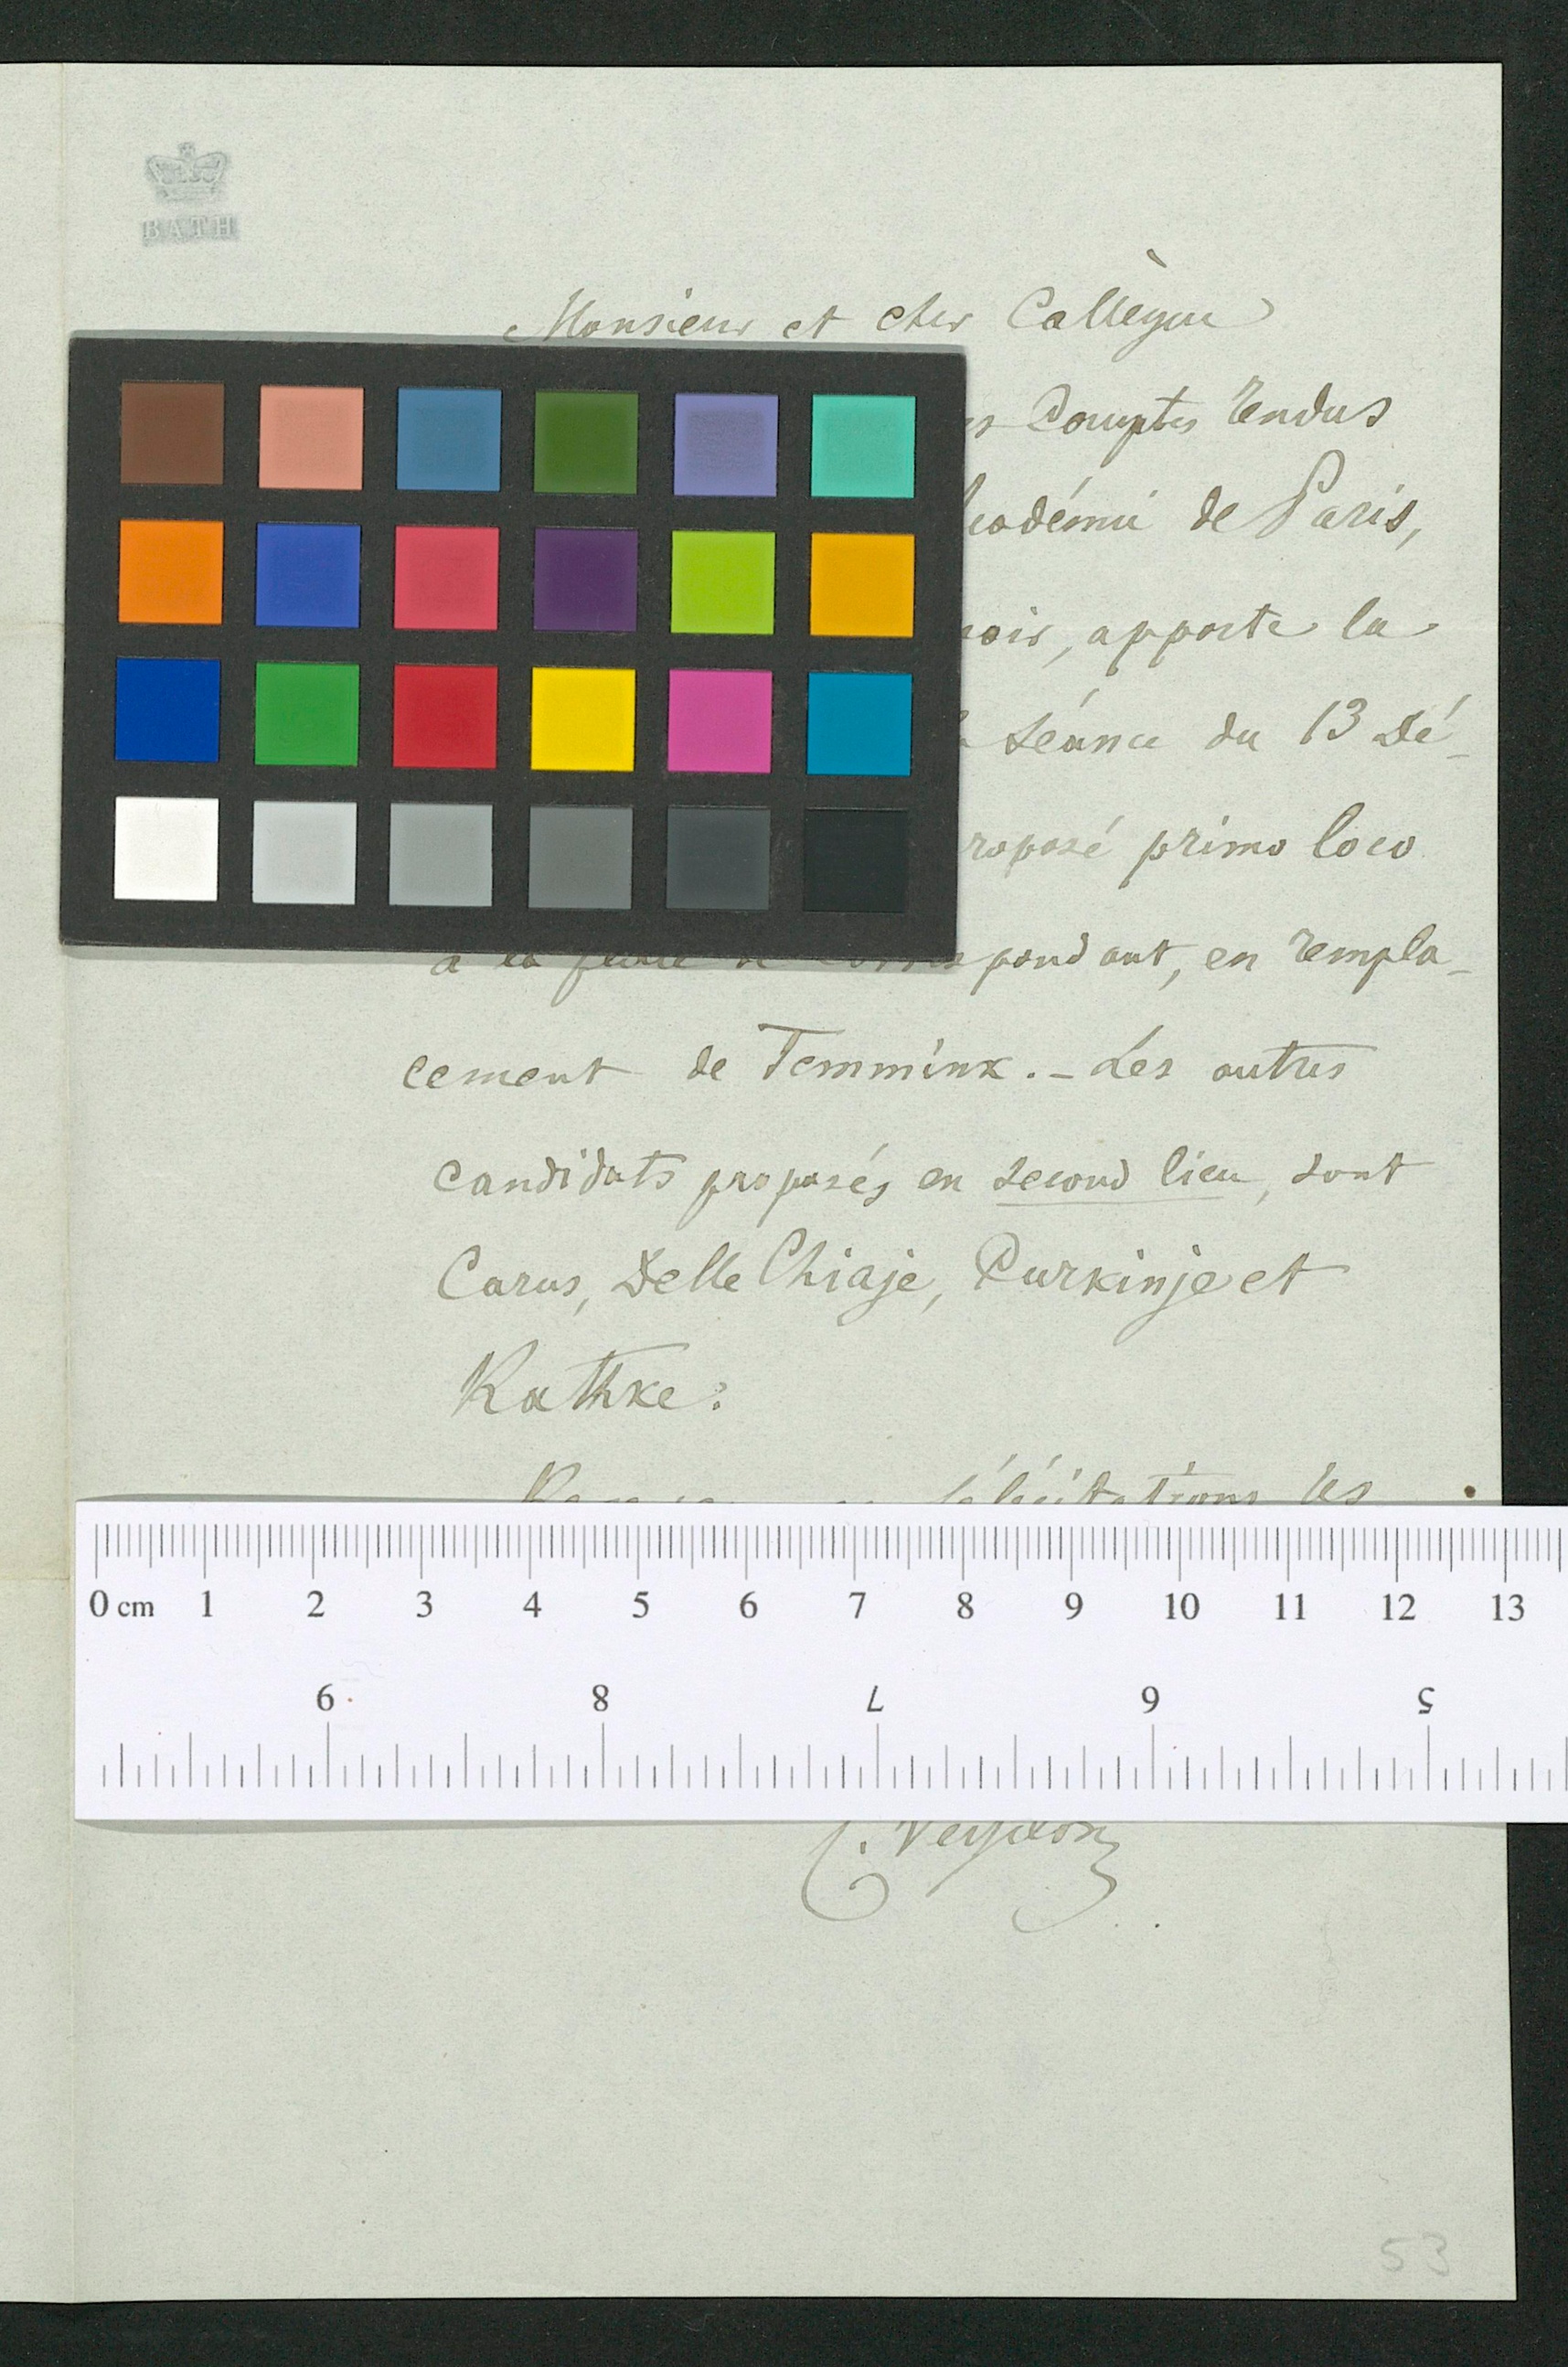 BATH
Monsieur et cher Collègue
Comptes rendus
cadémie de Paris,
oir, apporte la
séance du 13 Dé-
roposé primo loco
à la pondant, en rempla-
cement de Temmink. - Les autres
candidats proposés en second lieu, sont
Carus, Delle Chiaje, Purkinje et
Rathke.
félicitations les
0 cm 1 2 3 4 5 6 7 8 9 10 11 12 13
9 8 7 6 5
53